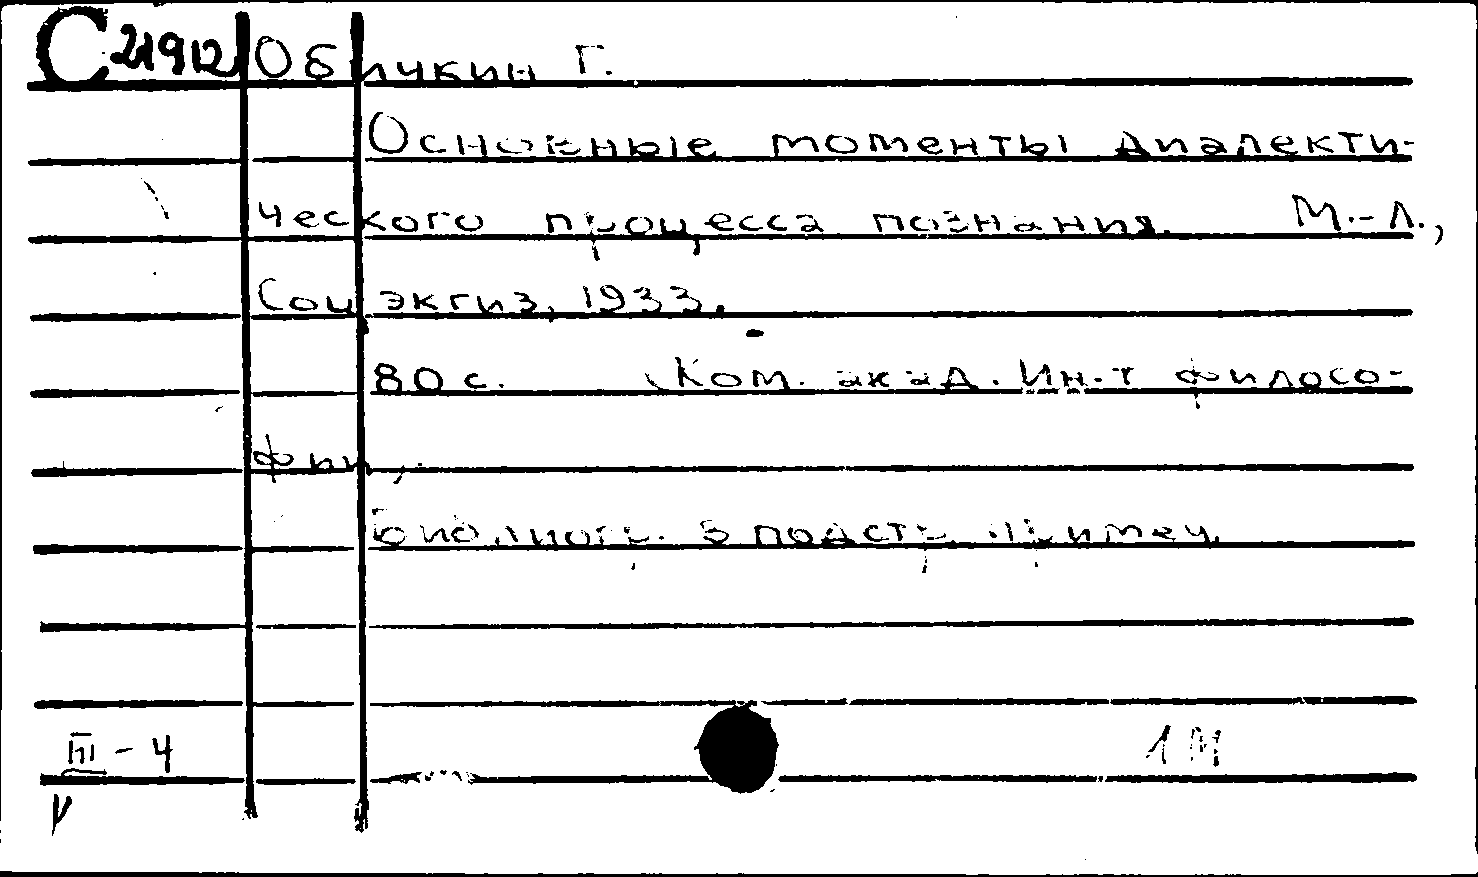 С 21912 Обичкин Г.
Основные моменты диалекти-
ческого процесса познания. М.-Л.,
Соцэкгиз, 1933.
80 с. (Ком. акад. Ин-т филосо-
фии).
Библиогр. в подстр. примеч.
III - 4 1М
V